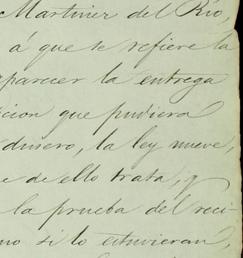 Martinez del Río,
á que se refiere la
parecer la entrega
cion que pudiera
dinero, la ley nueve,
e de ello trata, y
la prueba del reci-
mo si lo estuvieran,